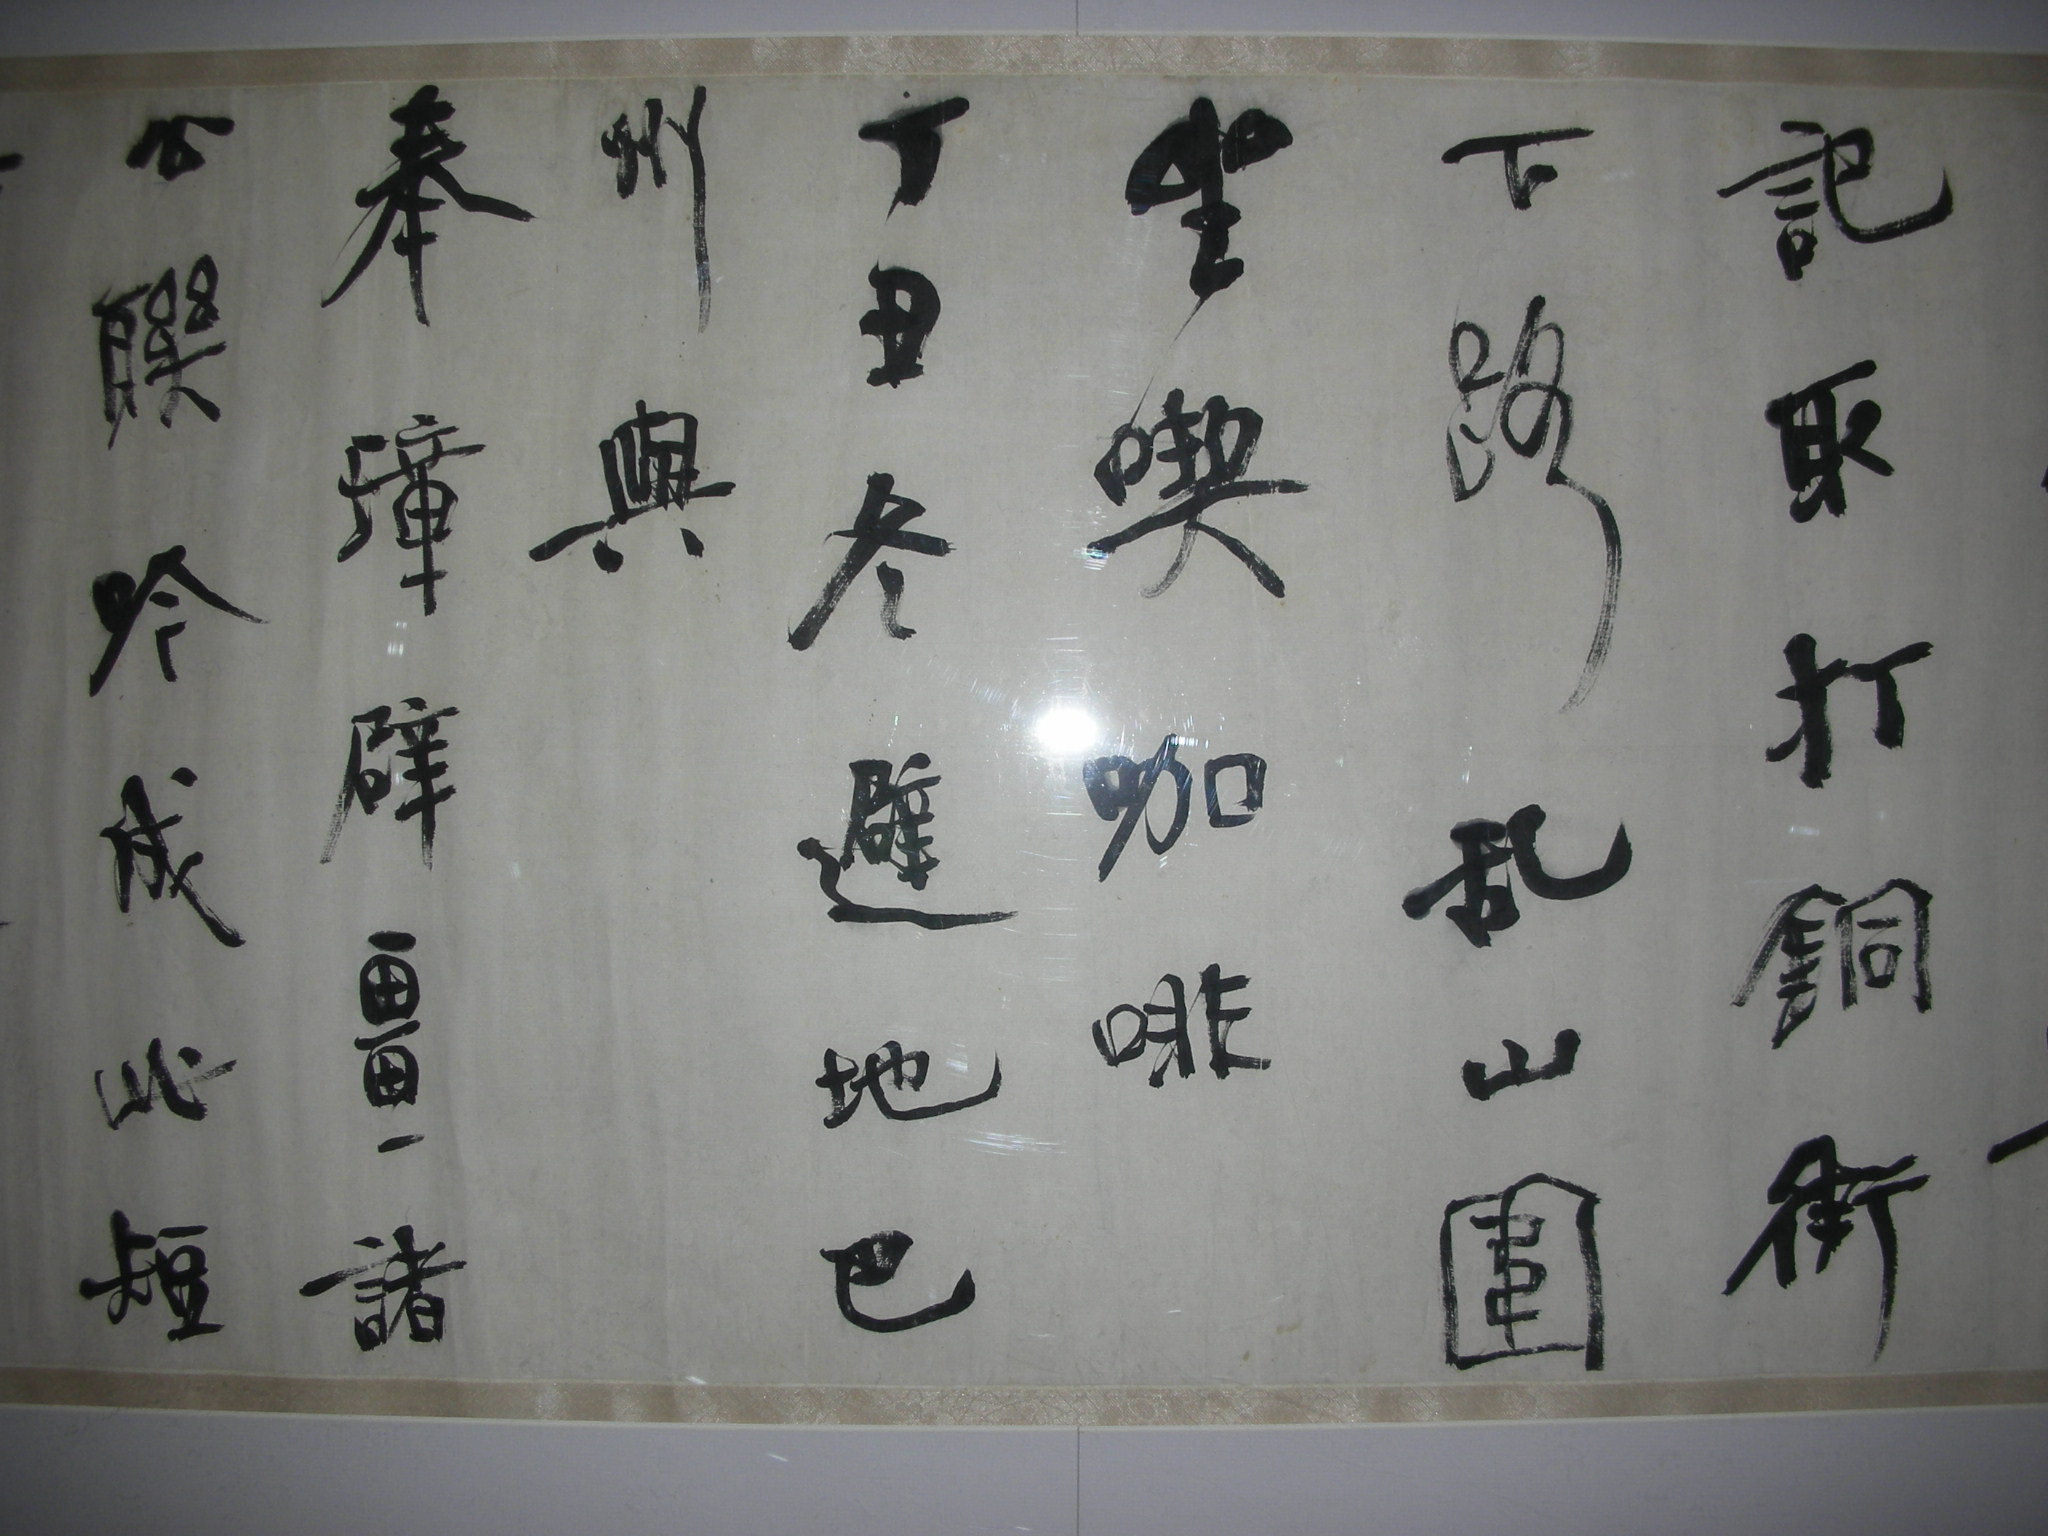 記取打銅街
下路乱山圍
坐喫咖啡
丁丑冬避地巴
州與
奉璋辟畺諸
公聯吟成此短